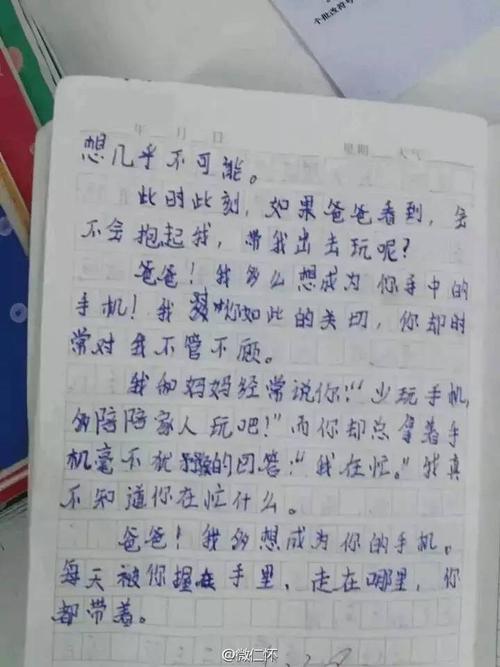 个批改符号
年 月 日 星期 天气
想几乎不可能。
此时此刻，如果爸爸看到，会
不会抱起我，带我出去玩呢？
爸爸！我多么想成为你手中的
手机！我对你如此的关切，你却时
常对我不管不顾。
我和妈妈经常说你：“少玩手机，
多陪陪家人玩吧！”而你却总拿着手
机毫不犹豫的回答：“我在忙。”我真
不知道你在忙什么。
爸爸！我多想成为你的手机。
每天被你握在手里，走在哪里，你
都带着。
@微仁怀